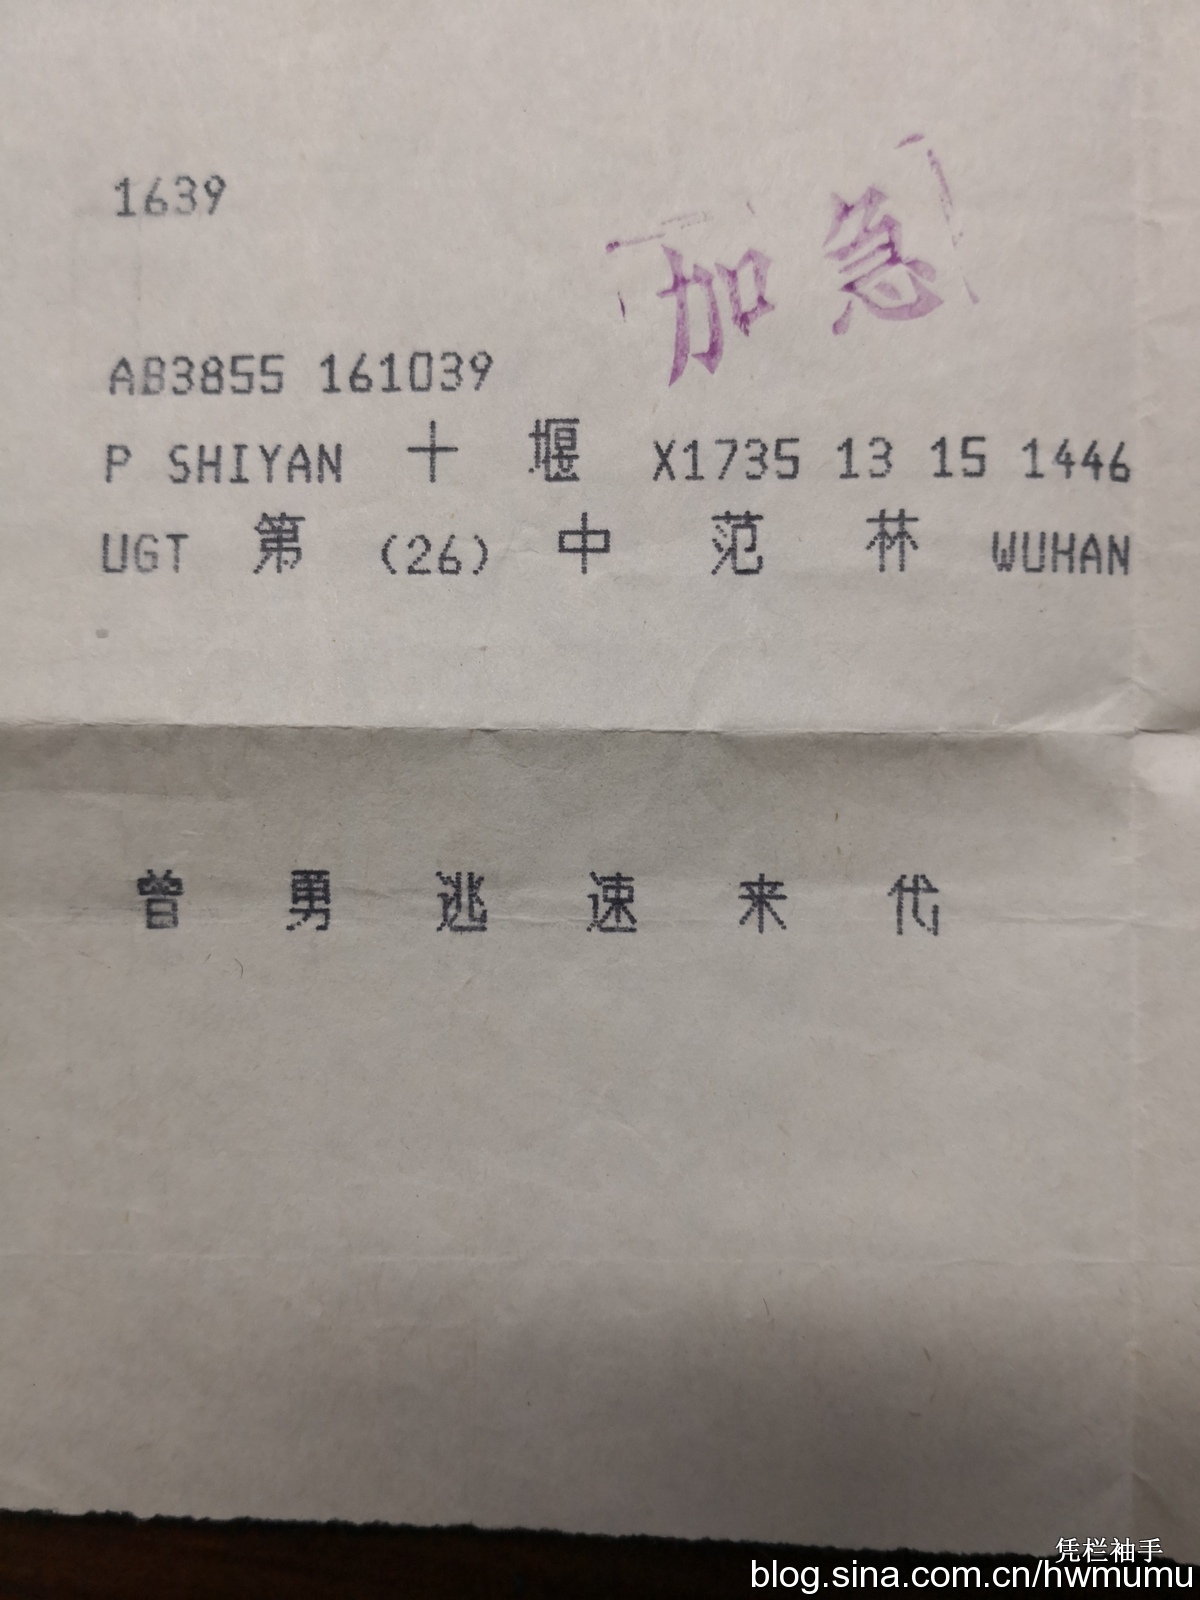 1639
加急
AB3855 161039
P SHIYAN 十 堰 X1735 13 15 1446
UGT 第 (26) 中 范 林 WUHAN
曾 勇 逃 速 来 代
凭栏袖手
blog.sina.com.cn/hwmumu